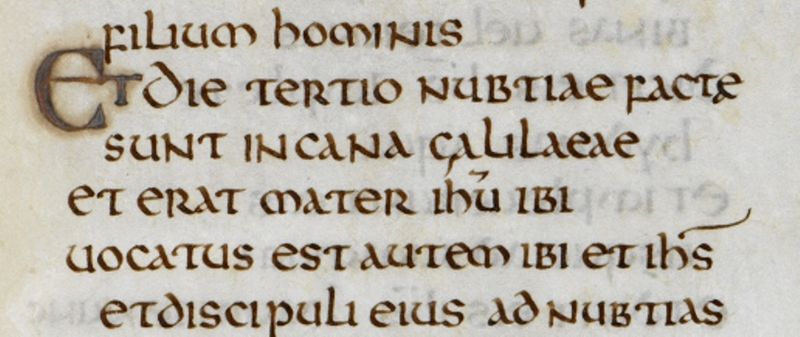 filium hominis
Et die tertio nubtiae factae
sunt in cana galilaeae
et erat mater ihū ibi
uocatus est autem ibi et ihs̄
et discipuli eius ad nubtias